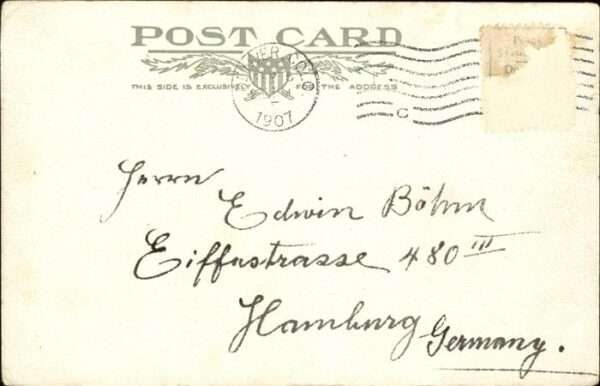 POST CARD
THIS SIDE IS EXCLUSIVELY FOR THE ADDRESS
1907
C
Herrn
Edwin Böhm
Eiffestrasse 480 III
Hamburg Germany.